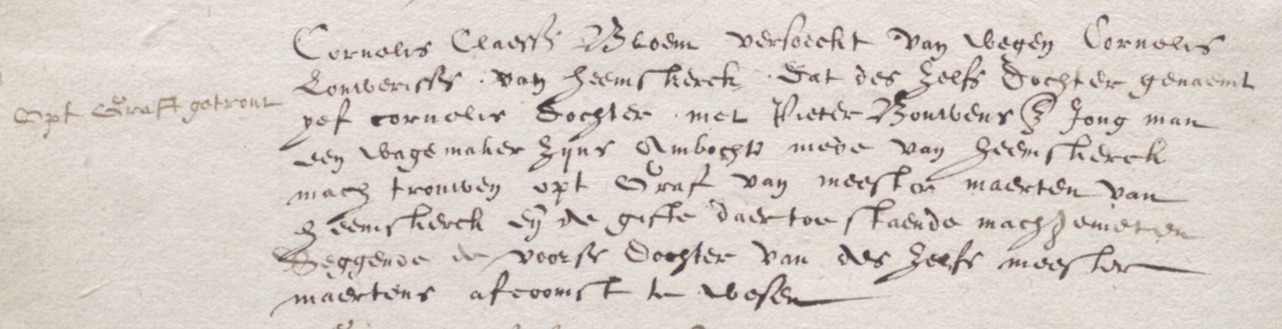 Opt Graff getrout
Cornelis Claessz Bloem versoeckt van wegen Cornelis
Louwerissz van heemskerck dat des zelfs dochter genaemt
yef cornelis dochter met Pieter Bouwensz Jong man
een wagemaker zijns Ambochts mede van heemskerck
mach trouwen opt Graf van meester maerten van
heemskerck en de gifte daer toe staende mach genieten
Seggende de voorsz dochter van des zelfs meester
maertens afcoomst te wesen